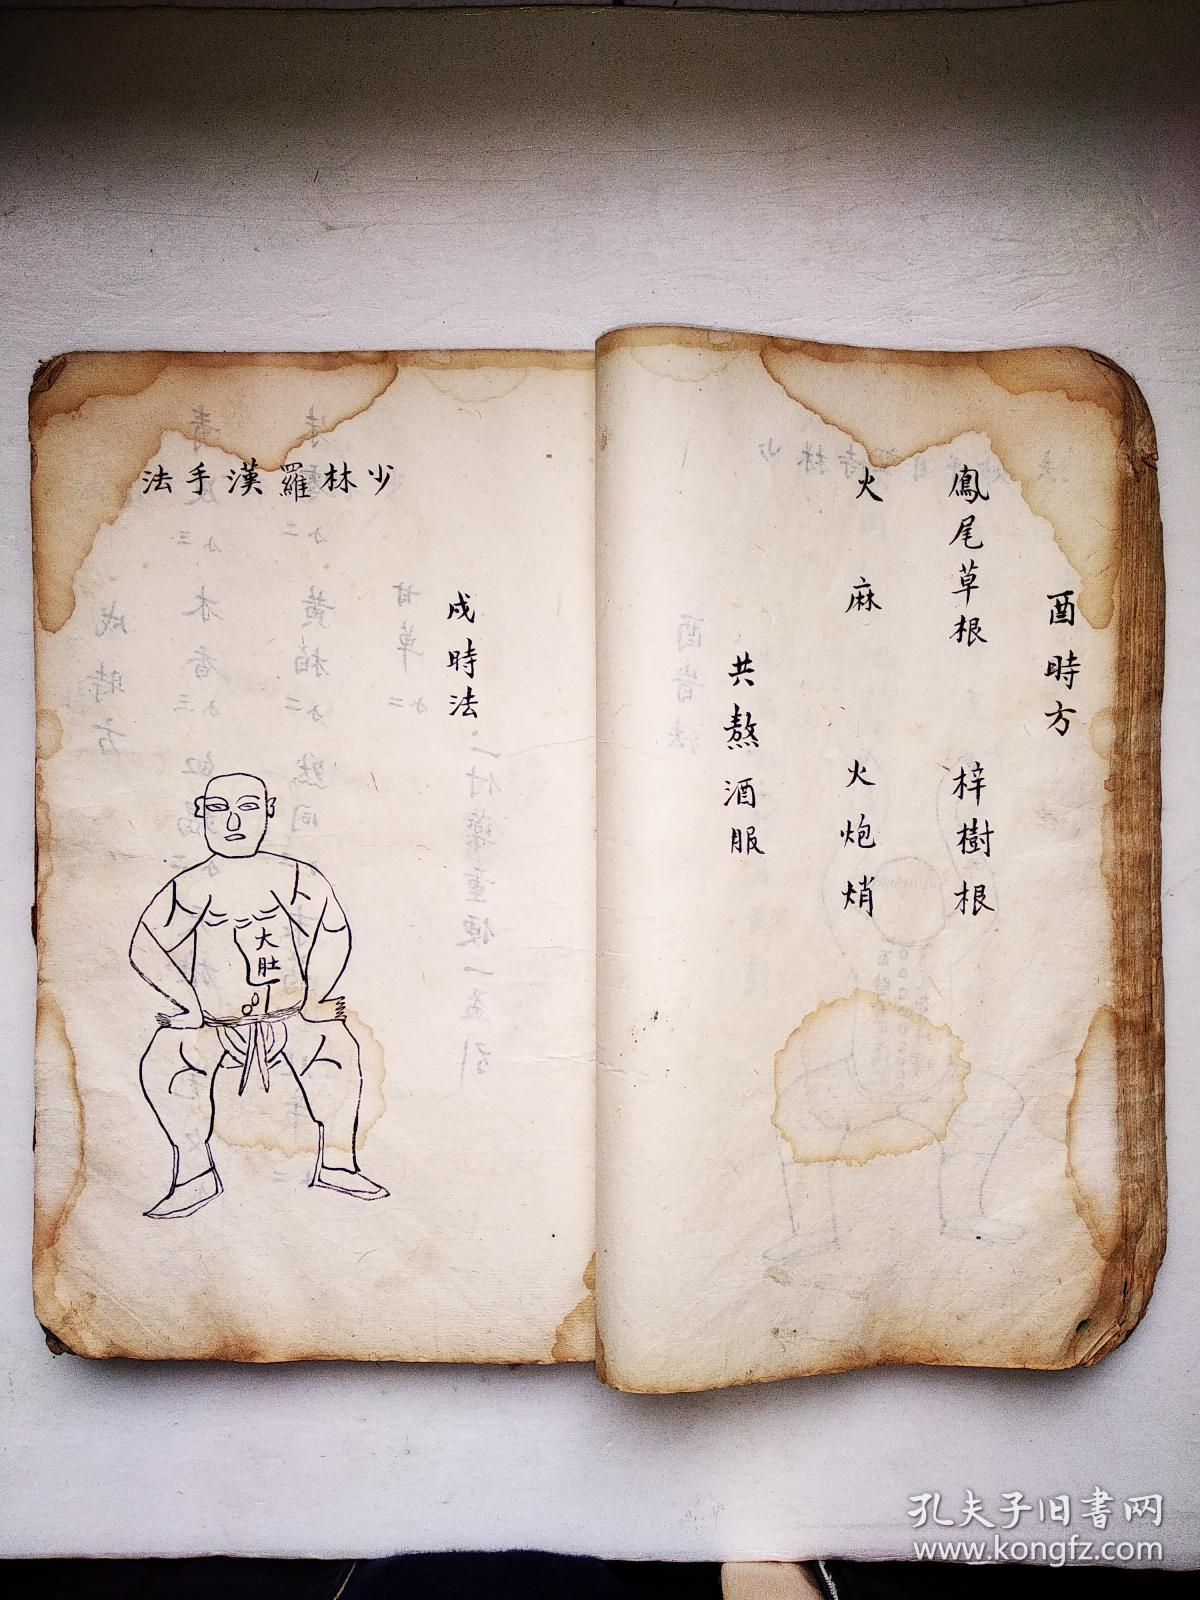 酉時方
鳳尾草根 梓樹根
火麻 火炮焇
共熬酒服
少林羅漢手法
戌時法
大肚
孔夫子旧书网
www.kongfz.com